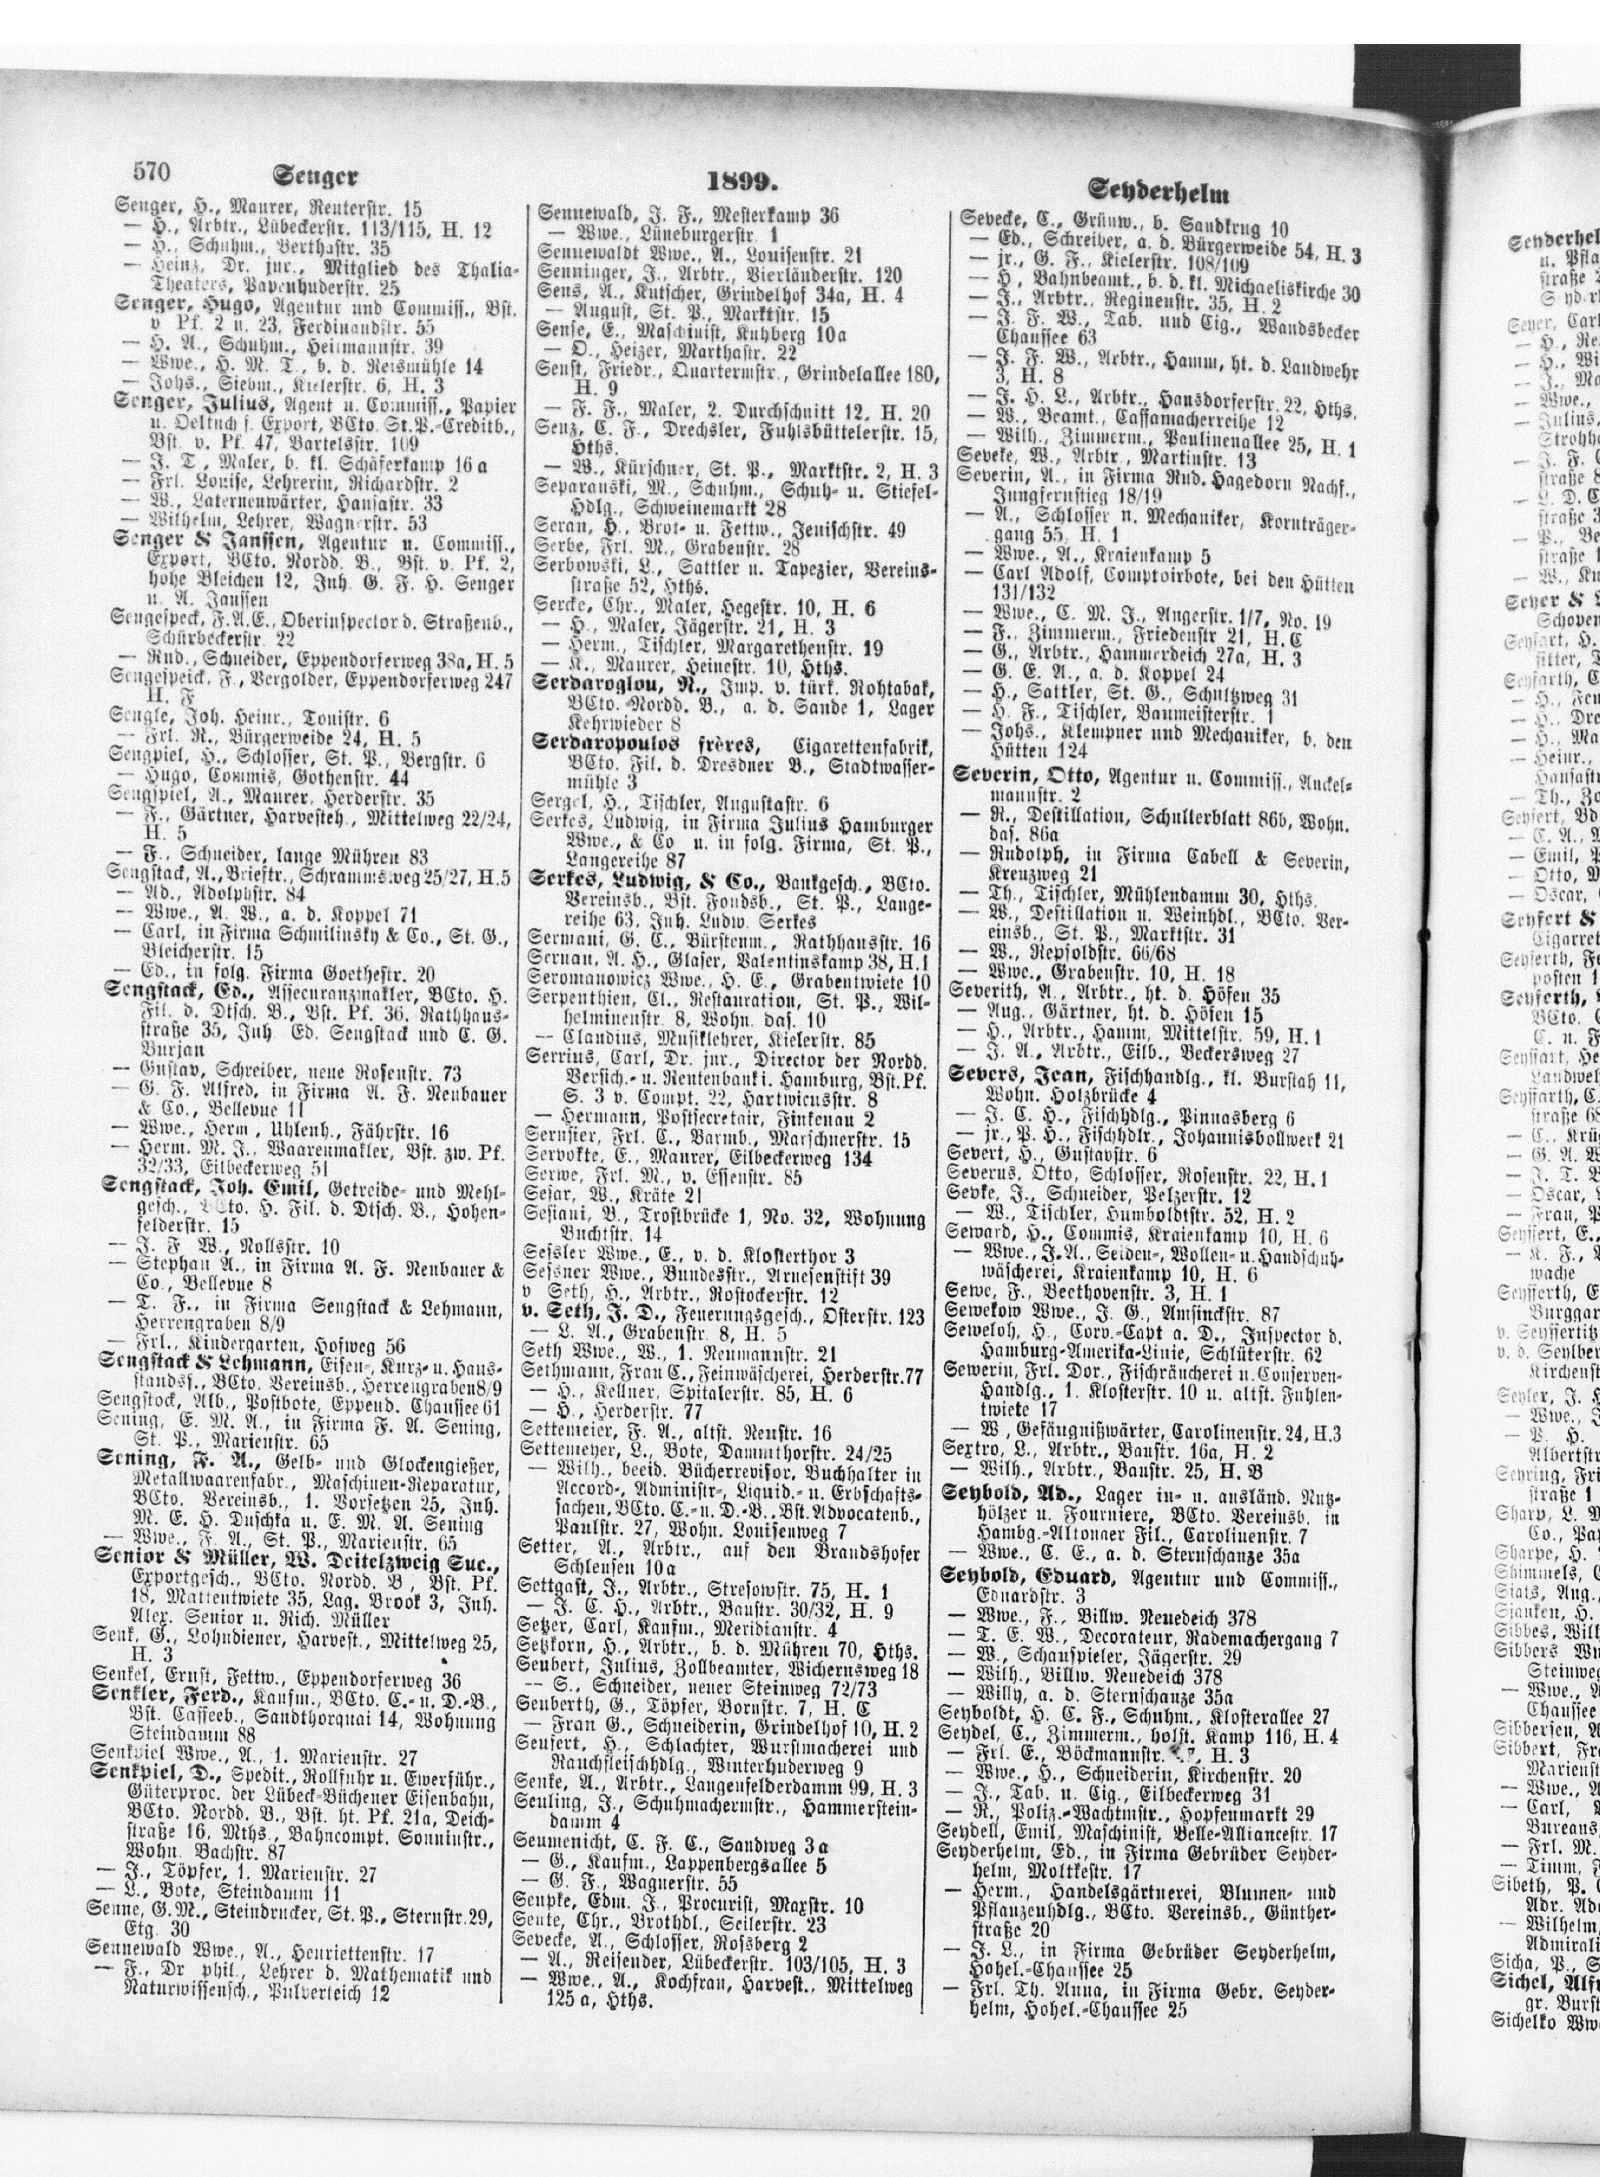 570 Senger
1899.
Seyderhelm
Senger, H., Maurer, Reuterstr. 15
— H., Arbtr., Lübeckerstr. 113/115, H. 12
— H., Schuhm., Berthastr. 35
— Heinz, Dr. jur., Mitglied des Thalia-
Theaters, Papenhuderstr. 25
Senger, Hugo, Agentur und Commiss., Bst.
v Pf. 2 u. 23, Ferdinandstr. 55
— H. A., Schuhm., Heitmannstr. 39
— Wwe., H. M. T., b. d. Reismühle 14
— Johs., Siebm., Kielerstr. 6, H. 3
Senger, Julius, Agent u. Commiss., Papier
u. Oeltuch f. Export, BCto. St.P.-Creditb.,
Bst. v. Pf. 47, Bartelsstr. 109
— J. T., Maler, b. kl. Schäferkamp 16a
— Frl. Louise, Lehrerin, Richardstr. 2
— W., Laternenwärter, Hansastr. 33
— Wilhelm, Lehrer, Wagnerstr. 53
Senger & Janssen, Agentur u. Commiss.,
Export, BCto. Nordd. B., Bst. v. Pf. 2,
hohe Bleichen 12, Inh. G. F. H. Senger
u. A. Janssen
Sengespeck, F.A.E., Oberinspector d. Straßenb.,
Schürbeckerstr. 22
— Rud., Schneider, Eppendorferweg 38a, H. 5
Sengespeick, F., Vergolder, Eppendorferweg 247
H. F
Sengle, Joh. Heinr., Tonistr. 6
— Frl. R., Bürgerweide 24, H. 5
Sengpiel, H., Schlosser, St. P., Bergstr. 6
— Hugo, Commis, Gothenstr. 44
Sengspiel, A., Maurer, Herderstr. 35
— F., Gärtner, Harvesteh., Mittelweg 22/24,
H. 5
— F., Schneider, lange Mühren 83
Sengstack, A., Brieftr., Schrammsweg 25/27, H.5
— Ad., Adolphstr. 84
— Wwe., A. W., a. d. Koppel 71
— Carl, in Firma Schmilinsky & Co., St. G.,
Bleicherstr. 15
— Ed., in folg. Firma Goethestr. 20
Sengstack, Ed., Assecuranzmakler, BCto. H.
Fil. d. Dtsch. B., Bst. Pf. 36. Rathhaus-
straße 35, Inh. Ed. Sengstack und C. G.
Burjan
— Gustav, Schreiber, neue Rosenstr. 73
— G. F. Alfred, in Firma A. F. Neubauer
& Co., Bellevue 11
— Wwe., Herm., Uhlenh., Fährstr. 16
— Herm. M. J., Waarenmakler, Bst. zw. Pf.
32/33, Eilbeckerweg 51
Sengstack, Joh. Emil, Getreide- und Mehl-
gesch., BCto. H. Fil. d. Dtsch. B., Hohen-
felderstr. 15
— J. F W., Nollsstr. 10
— Stephan A., in Firma A. F. Neubauer &
Co., Bellevue 8
— T. F., in Firma Sengstack & Lehmann,
Herrengraben 8/9
— Frl., Kindergarten, Hofweg 56
Sengstack & Lehmann, Eisen-, Kurz- u. Haus-
standss., BCto. Vereinsb., Herrengraben8/9
Sengstock, Alb., Postbote, Eppend. Chaussee 61
Sening, E. M. A., in Firma F. A. Sening,
St. P., Marienstr. 65
Sening, F. A., Gelb- und Glockengießer,
Metallwaarenfabr., Maschinen-Reparatur,
BCto. Vereinsb., 1. Vorsetzen 25, Inh.
M. E. H. Duschka u. E. M. A. Sening
— Wwe., F. A., St. P., Marienstr. 65
Senior & Müller, W. Deitelzweig Suc.,
Exportgesch., BCto. Nordd. B., Bst. Pf.
18, Mattentwiete 35, Lag. Brook 3, Inh.
Alex. Senior u. Rich. Müller
Senk, G., Lohndiener, Harvest., Mittelweg 25,
H. 3
Senkel, Ernst, Fettw., Eppendorferweg 36
Senkler, Ferd., Kaufm., BCto. C.- u. D.-B.,
Bst. Caffeeb., Sandthorquai 14, Wohnung
Steindamm 88
Senkpiel Wwe., A., 1. Marienstr. 27
Senkpiel, D., Spedit., Rollfuhr u. Ewerführ.,
Güterproc. der Lübeck-Büchener Eisenbahn,
BCto. Nordd. B., Bst. ht. Pf. 21a, Deich-
straße 16, Mths., Bahncompt. Sonninstr.,
Wohn. Bachstr. 87
— J., Töpfer, 1. Marienstr. 27
— L., Bote, Steindamm 11
Senne, G.M., Steindrucker, St.P., Sternstr.29,
Etg. 30
Sennewald Wwe., A., Henriettenstr. 17
— F., Dr phil., Lehrer d. Mathematik und
Naturwissensch., Pulverteich 12
Sennewald, J. F., Mesterkamp 36
— Wwe., Lüneburgerstr. 1
Sennewaldt Wwe., A., Louisenstr. 21
Senninger, J., Arbtr., Vierländerstr. 120
Sens, A., Kutscher, Grindelhof 34a, H. 4
— August, St. P., Marktstr. 15
Sense, E., Maschinist, Kuhberg 10a
— O., Heizer, Marthastr. 22
Senst, Friedr., Quartermstr., Grindelallee 180,
H. 9
— F. F., Maler, 2. Durchschnitt 12, H. 20
Senz, C. F., Drechsler, Fuhlsbüttelerstr. 15,
Hths.
— W., Kürschner, St. P., Marktstr. 2, H. 3
Separauski, M., Schuhm., Schuh- u. Stiefel-
Hdlg., Schweinemarkt 28
Seran, H., Brot- u. Fettw., Jenischstr. 49
Serbe, Frl. M., Grabenstr. 28
Serbowski, L., Sattler u. Tapezier, Vereins-
straße 52, Hths.
Sercke, Chr., Maler, Hegestr. 10, H. 6
— H., Maler, Jägerstr. 21, H. 3
— Herm., Tischler, Margarethenstr. 19
— K., Maurer, Heinestr. 10, Hths.
Serdaroglou, N., Imp. v. türk. Rohtabak,
BCto. Nordd. B., a. d. Sande 1, Lager
Kehrwieder 8
Serdaropoulos frères, Cigarettenfabrik,
BCto. Fil. d. Dresdner B., Stadtwasser-
mühle 3
Sergel, H., Tischler, Augustastr. 6
Serkes, Ludwig, in Firma Julius Hamburger
Wwe., & Co u. in folg. Firma, St. P.,
Langereihe 87
Serkes, Ludwig, & Co., Bankgesch., BCto.
Vereinsb., Bst. Fondsb., St. P., Lange-
reihe 63, Inh. Ludw. Serkes
Sermani, G. C., Bürstenm., Rathhausstr. 16
Sernau, A. H., Glaser, Valentinskamp 38, H.1
Seromanowicz Wwe., H. E., Grabentwiete 10
Serpenthien, Cl., Restauration, St. P., Wil-
helminenstr. 8, Wohn. das. 10
— Claudius, Musiklehrer, Kielerstr. 85
Serrius, Carl, Dr. jur., Director der Nordd.
Versich.- u. Rentenbank i. Hamburg, Bst.Pf.
S. 3 v. Compt. 22, Hartwicusstr. 8
— Hermann, Postsecretair, Finkenau 2
Sernsier, Frl. C., Barmb., Marschnerstr. 15
Servokte, E., Maurer, Eilbeckerweg 134
Serwe, Frl. M., v. Essenstr. 85
Sesar, W., Kräte 21
Sesiani, B., Trostbrücke 1, No. 32, Wohnung
Buchtstr. 14
Sessler Wwe., E., v. d. Klosterthor 3
Sessner Wwe., Bundesstr., Arnesenstift 39
v Seth, H., Arbtr., Rostockerstr. 12
v. Seth, J. D., Feuerungsgesch., Osterstr. 123
— L. A., Grabenstr. 8, H. 5
Seth Wwe., W., 1. Neumannstr. 21
Sethmann, Frau C., Feinwäscherei, Herderstr.77
— H., Kellner, Spitalerstr. 85, H. 6
— H., Herderstr. 77
Settemeier, F. A., altst. Neustr. 16
Settemeyer, L., Bote, Dammthorstr. 24/25
— Wilh., beeid. Bücherrevisor, Buchhalter in
Accord-, Administr-, Liquid.- u. Erbschafts-
sachen, BCto. C.- u. D.-B., Bst. Advocatenb.,
Paulstr. 27, Wohn. Louisenweg 7
Setter, A., Arbtr., auf den Brandshofer
Schleusen 10a
Settgast, J., Arbtr., Stresowstr. 75, H. 1
— J. C. H., Arbtr., Baustr. 30/32, H. 9
Setzer, Carl, Kaufm., Meridianstr. 4
Setzkorn, H., Arbtr., b. d. Mühren 70, Hths.
Seubert, Julius, Zollbeamter, Wichernsweg 18
— S., Schneider, neuer Steinweg 72/73
Seuberth, G., Töpfer, Bornstr. 7, H. C
— Frau G., Schneiderin, Grindelhof 10, H. 2
Seufert, H., Schlachter, Wurstmacherei und
Rauchfleischhdlg., Winterhuderweg 9
Seuke, A., Arbtr., Langenfelderdamm 99, H. 3
Seuling, J., Schuhmachermstr., Hammerstein-
damm 4
Seumenicht, C. F. C., Sandweg 3a
— G., Kaufm., Lappenbergsallee 5
— G. F., Wagnerstr. 55
Seupke, Edm. J., Procurist, Maxstr. 10
Seute, Chr., Brothdl., Seilerstr. 23
Sevecke, A., Schlosser, Rossberg 2
— A., Reisender, Lübeckerstr. 103/105, H. 3
— Wwe., A., Kochfrau, Harvest., Mittelweg
125a, Hths.
Sevecke, C., Grünw., b. Sandkrug 10
— Ed., Schreiber, a. d. Bürgerweide 54, H. 3
— jr., G. F., Kielerstr. 108/109
— H, Bahnbeamt., b. d. kl. Michaeliskirche 30
— J., Arbtr., Reginenstr. 35, H. 2
— J. F. W., Tab. und Cig., Wandsbecker
Chaussee 63
— J. F. W., Arbtr., Hamm, ht. d. Landwehr
3, H. 8
— J. H. L., Arbtr., Hansdorferstr. 22, Hths.
— W., Beamt., Caffamacherreihe 12
— Wilh., Zimmerm., Paulinenallee 25, H. 1
Seveke, W., Arbtr., Martinstr. 13
Severin, A., in Firma Rud. Hagedorn Nachf.,
Jungfernstieg 18/19
— A., Schlosser n. Mechaniker, Kornträger-
gang 55, H. 1
— Wwe., A., Kraienkamp 5
— Carl Adolf, Comptoirbote, bei den Hütten
131/132
— Wwe., C. M. J., Angerstr. 1/7, No. 19
— F., Zimmerm., Friedenstr 21, H. C
— G., Arbtr., Hammerdeich 27a, H. 3
— G. E. A., a. d. Koppel 24
— H., Sattler, St. G., Schultzweg 31
— H. F., Tischler, Baumeisterstr. 1
— Johs., Klempner und Mechaniker, b. den
Hütten 124
Severin, Otto, Agentur u. Commiss., Anckel-
mannstr. 2
— R., Destillation, Schullerblatt 86b, Wohn.
das. 86a
— Rudolph, in Firma Cabell & Severin,
Kreuzweg 21
— Th., Tischler, Mühlendamm 30, Hths.
— W., Destillation u. Weinhdl., BCto. Ver-
einsb., St. P., Marktstr. 31
— W., Repsoldstr. 66/68
— Wwe., Grabenstr. 10, H. 18
Severith, A., Arbtr., ht. d. Höfen 35
— Aug., Gärtner, ht. d. Höfen 15
— H., Arbtr., Hamm, Mittelstr. 59, H. 1
— J. A., Arbtr., Eilb., Beckersweg 27
Severs, Jean, Fischhandlg., kl. Burstah 11,
Wohn. Holzbrücke 4
— J. C. H., Fischhdlg., Pinnasberg 6
— jr., P. H., Fischhdlr., Johannisbollwerk 21
Severt, H., Gustavstr. 6
Severus, Otto, Schlosser, Rosenstr. 22, H. 1
Sevke, J., Schneider, Pelzerstr. 12
— W., Tischler, Humboldtstr. 52, H. 2
Seward, H., Commis, Kraienkamp 10, H. 6
— Wwe., J. A., Seiden-, Wollen- u. Handschuh-
wäscherei, Kraienkamp 10, H. 6
Sewe, F., Beethovenstr. 3, H. 1
Sewekow Wwe., J. G., Amsinckstr. 87
Seweloh, H., Corv.-Capt a. D., Inspector d.
Hamburg-Amerika-Linie, Schlüterstr. 62
Sewerin, Frl. Dor., Fischräucherei u. Conserven-
Handlg., 1. Klosterstr. 10 u. altst. Fuhlen-
twiete 17
— W, Gefängnißwärter, Carolinenstr. 24, H.3
Sextro, L., Arbtr., Baustr. 16a, H. 2
— Wilh., Arbtr., Baustr. 25, H. B
Seybold, Ad., Lager in- u. ausländ. Nutz-
hölzer u. Fourniere, BCto. Vereinsb. in
Hambg.-Altonaer Fil., Carolinenstr. 7
— Wwe., C. E., a. d. Sternschanze 35a
Seybold, Eduard, Agentur und Commiss.,
Eduardstr. 3
— Wwe., F., Billw. Neuedeich 378
— T. E. W., Decorateur, Rademachergang 7
— W., Schauspieler, Jägerstr. 29
— Wilh., Billw. Neuedeich 378
— Willy, a. d. Sternschanze 35a
Seyboldt, H. C. F., Schuhm., Klosterallee 27
Seydel, C., Zimmerm., holst. Kamp 116, H. 4
— Frl. E., Böckmannstr. 7, H. 3
— Wwe., H., Schneiderin, Kirchenstr. 20
— J., Tab. u. Cig., Eilbeckerweg 31
— R., Poliz.-Wachtmstr., Hopfenmarkt 29
Seydell, Emil, Maschinist, Belle-Alliancestr. 17
Seyderhelm, Ed., in Firma Gebrüder Seyder-
helm, Moltkestr. 17
— Herm., Handelsgärtnerei, Blumen- und
Pflanzenhdlg., BCto. Vereinsb., Günther-
straße 20
— J. L., in Firma Gebrüder Seyderhelm,
Hohel.-Chaussee 25
— Frl. Th. Anna, in Firma Gebr. Seyder-
helm, Hohel.-Chaussee 25